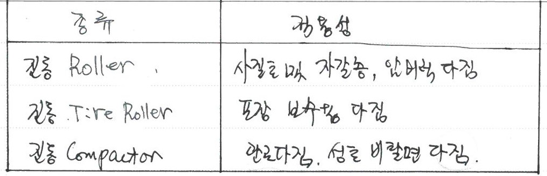 종류 적용성
진동 Roller 사질토 및 자갈층, 암버럭 다짐
진동 Tire Roller 포장 보수용 다짐
진동 Compactor 다짐, 성토 비탈면 다짐.